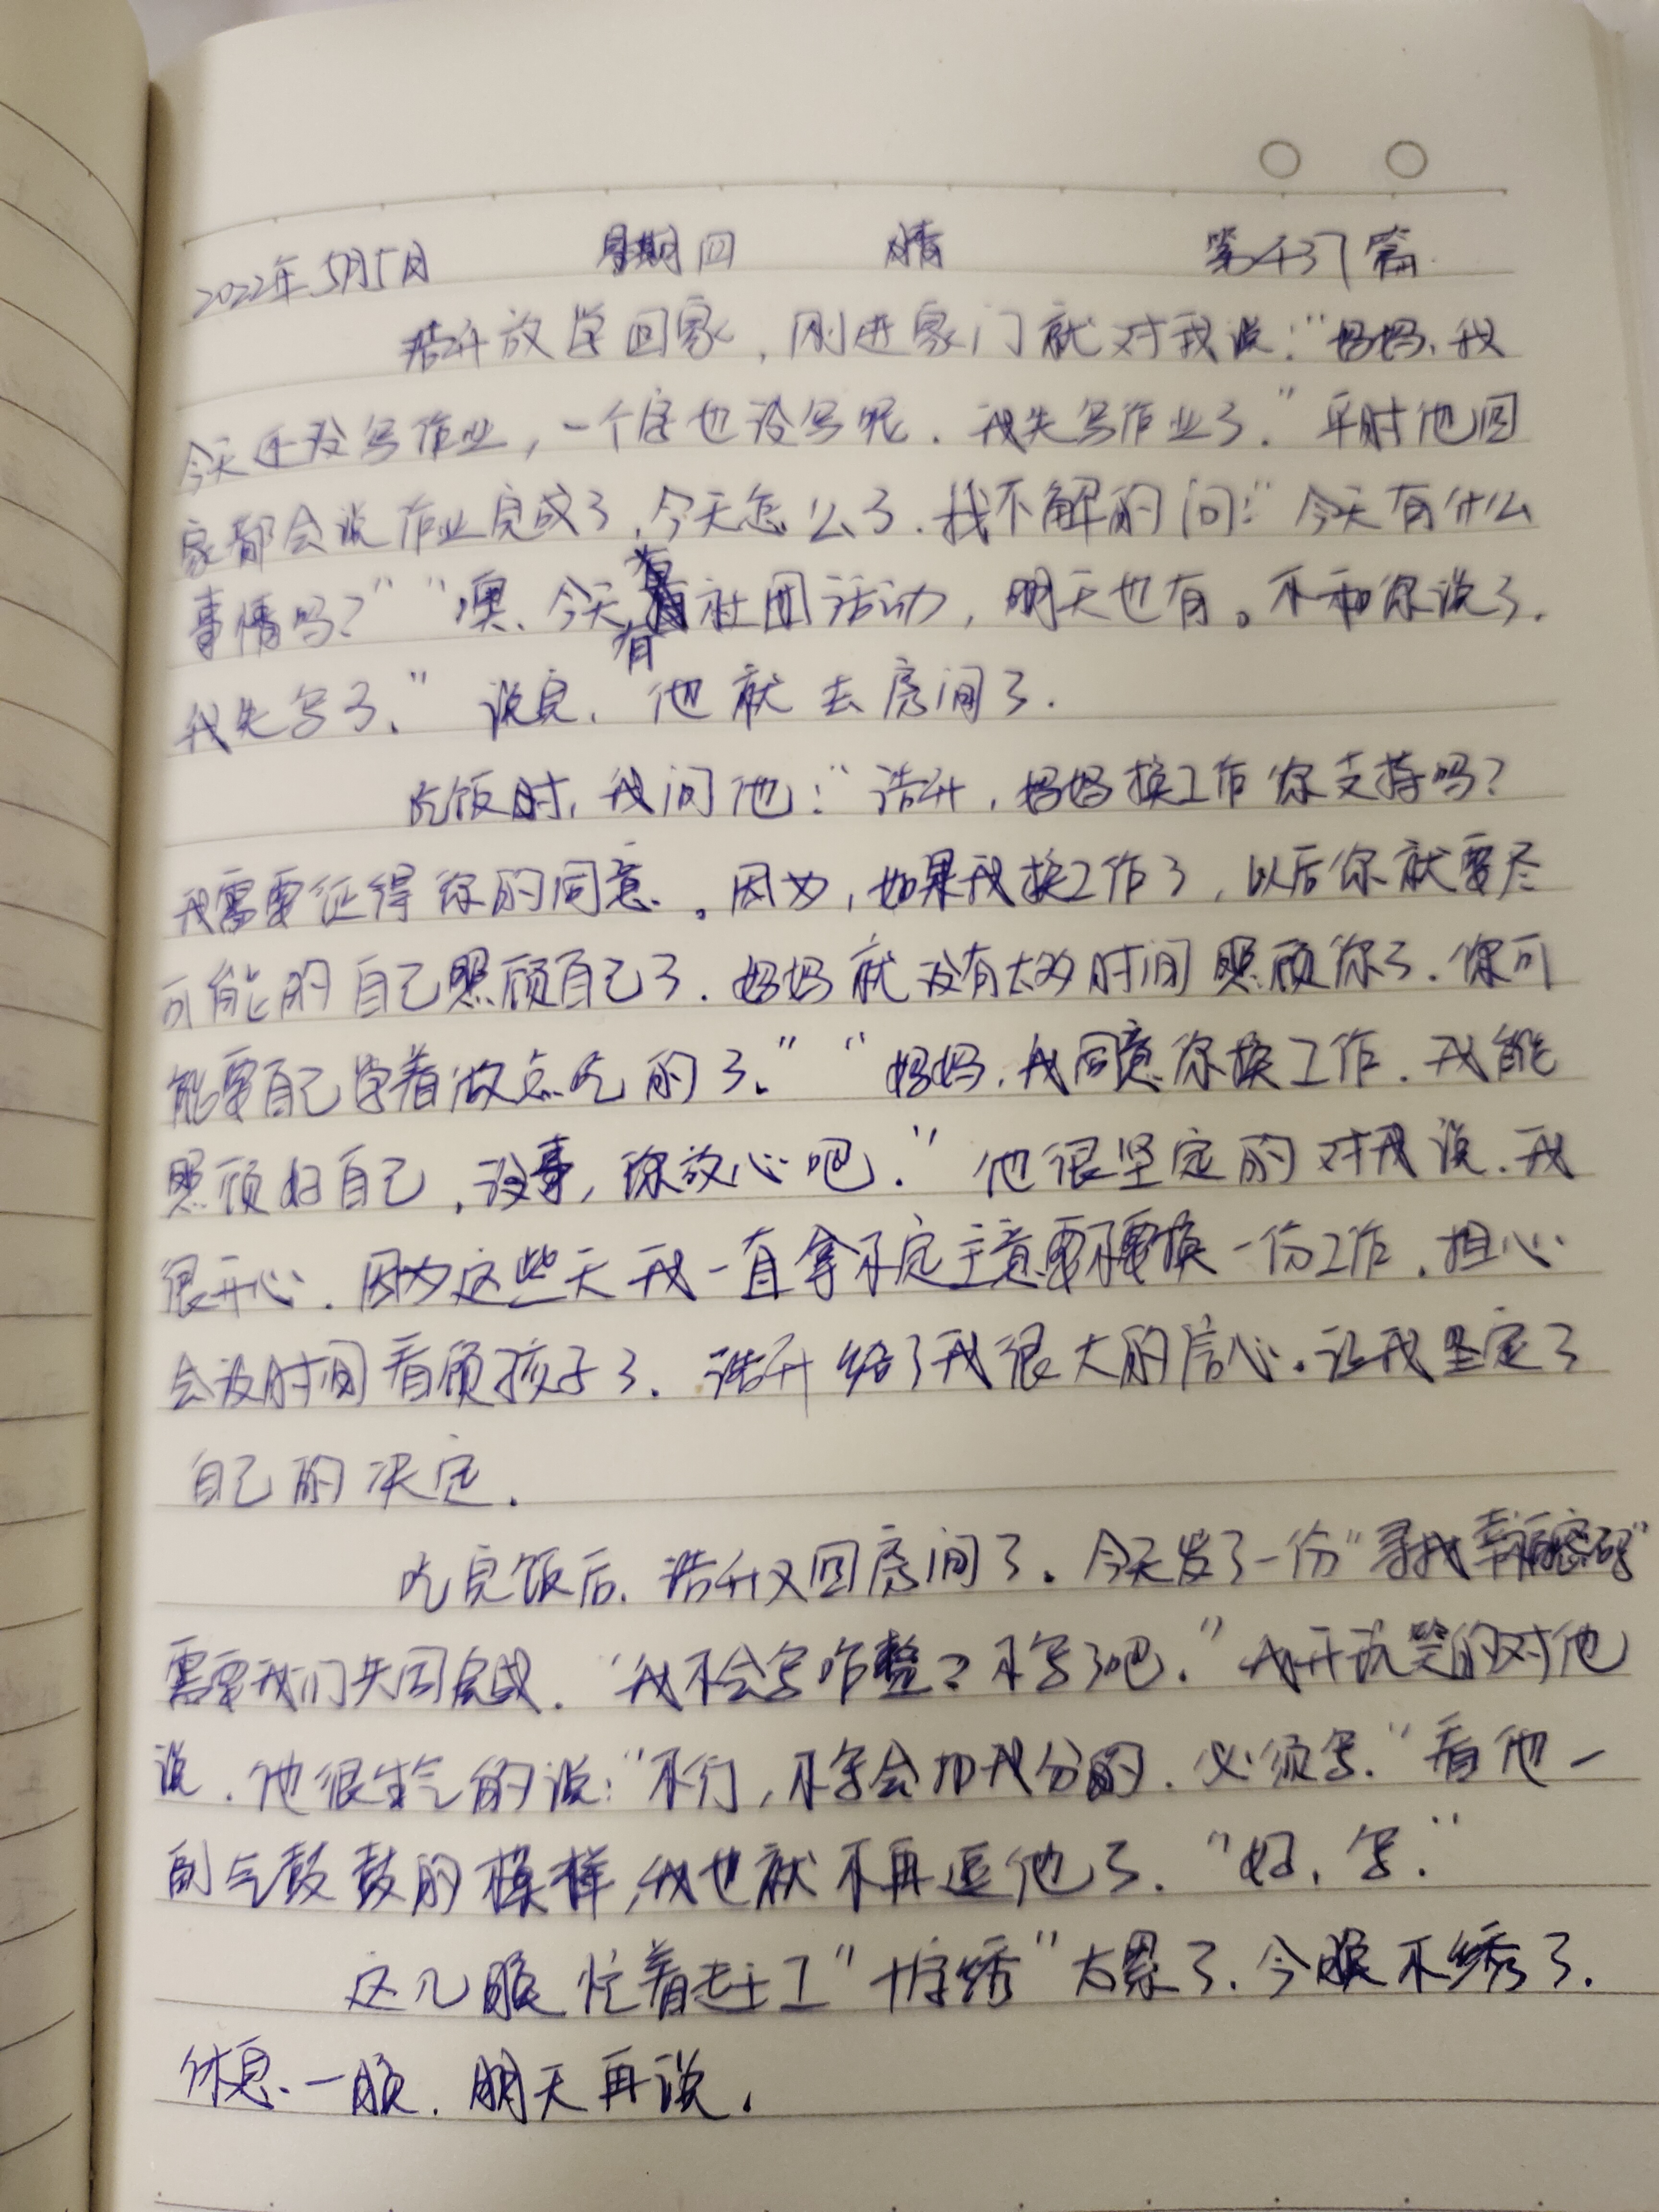 2022年5月5日 星期四 晴 第437篇
浩升放学回家，刚进家门就对我说：“妈妈、我
今天还没写作业，一个字也没写呢．我先写作业了．”平时他回
家都会说作业完成了，今天怎么了．我不解的问：“今天有什么
事情吗？”“噢、今天有社团活动，明天也有。不和你说了．
我先写了．”说完．他就去房间了．
吃饭时，我问他：“浩升，妈妈换工作你支持吗？
我需要征得你的同意．。因为，如果我换工作了，以后你就要尽
可能的自己照顾自己了．妈妈就没有太多时间照顾你了．你可
能要自己学着做点吃的了．”“妈妈．我同意你换工作．我能
照顾好自己，没事，你放心吧．”他很坚定的对我说．我
很开心．因为这些天我一直拿不定主意要不要换一份工作．担心
会没时间看顾孩子了．浩升给了我很大的信心．让我坚定了
自己的决定．
吃完饭后．浩升又回房间了．今天发了一份“寻找幸福密码”
需要我们共同完成．“我不会写咋整？不写了吧．”我开玩笑的对他
说．他很生气的说：“不行，不写会扣我分的．必须写．”看他一
副气鼓鼓的模样，我也就不再逗他了．“好．写．”
这几晚忙着赶工“十字绣”太累了．今晚不绣了．
休息一晚．明天再说．